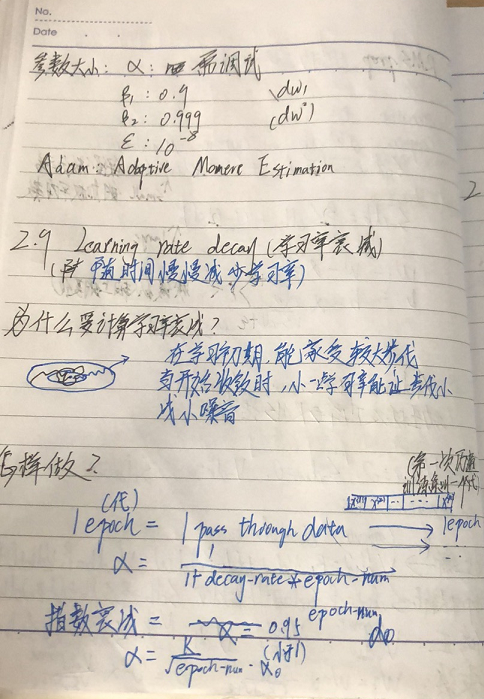 No.
Date
参数大小: α: 需调试
β₁: 0.9 (dw₁
β₂: 0.999 (dw²)
ε: 10⁻⁸
Adam: Adaptive Momere Estimation
2.9 Learning rate decay (学习率衰减)
(随时间慢慢减少学习率)
为什么要计算学习率衰减?
在学习初期,能承受较大步伐
当开始收敛时,小一点学习率能让步伐小
减小噪音
怎样做?
(第一次历遍
训练集,一代)
(代)
1 epoch = 1 pass through data
1 epoch
α = 1 / (1+decay-rate*epoch-num)
指数衰减 = α = 0.95 epoch-num α₀
α = K / √epoch-num · α₀